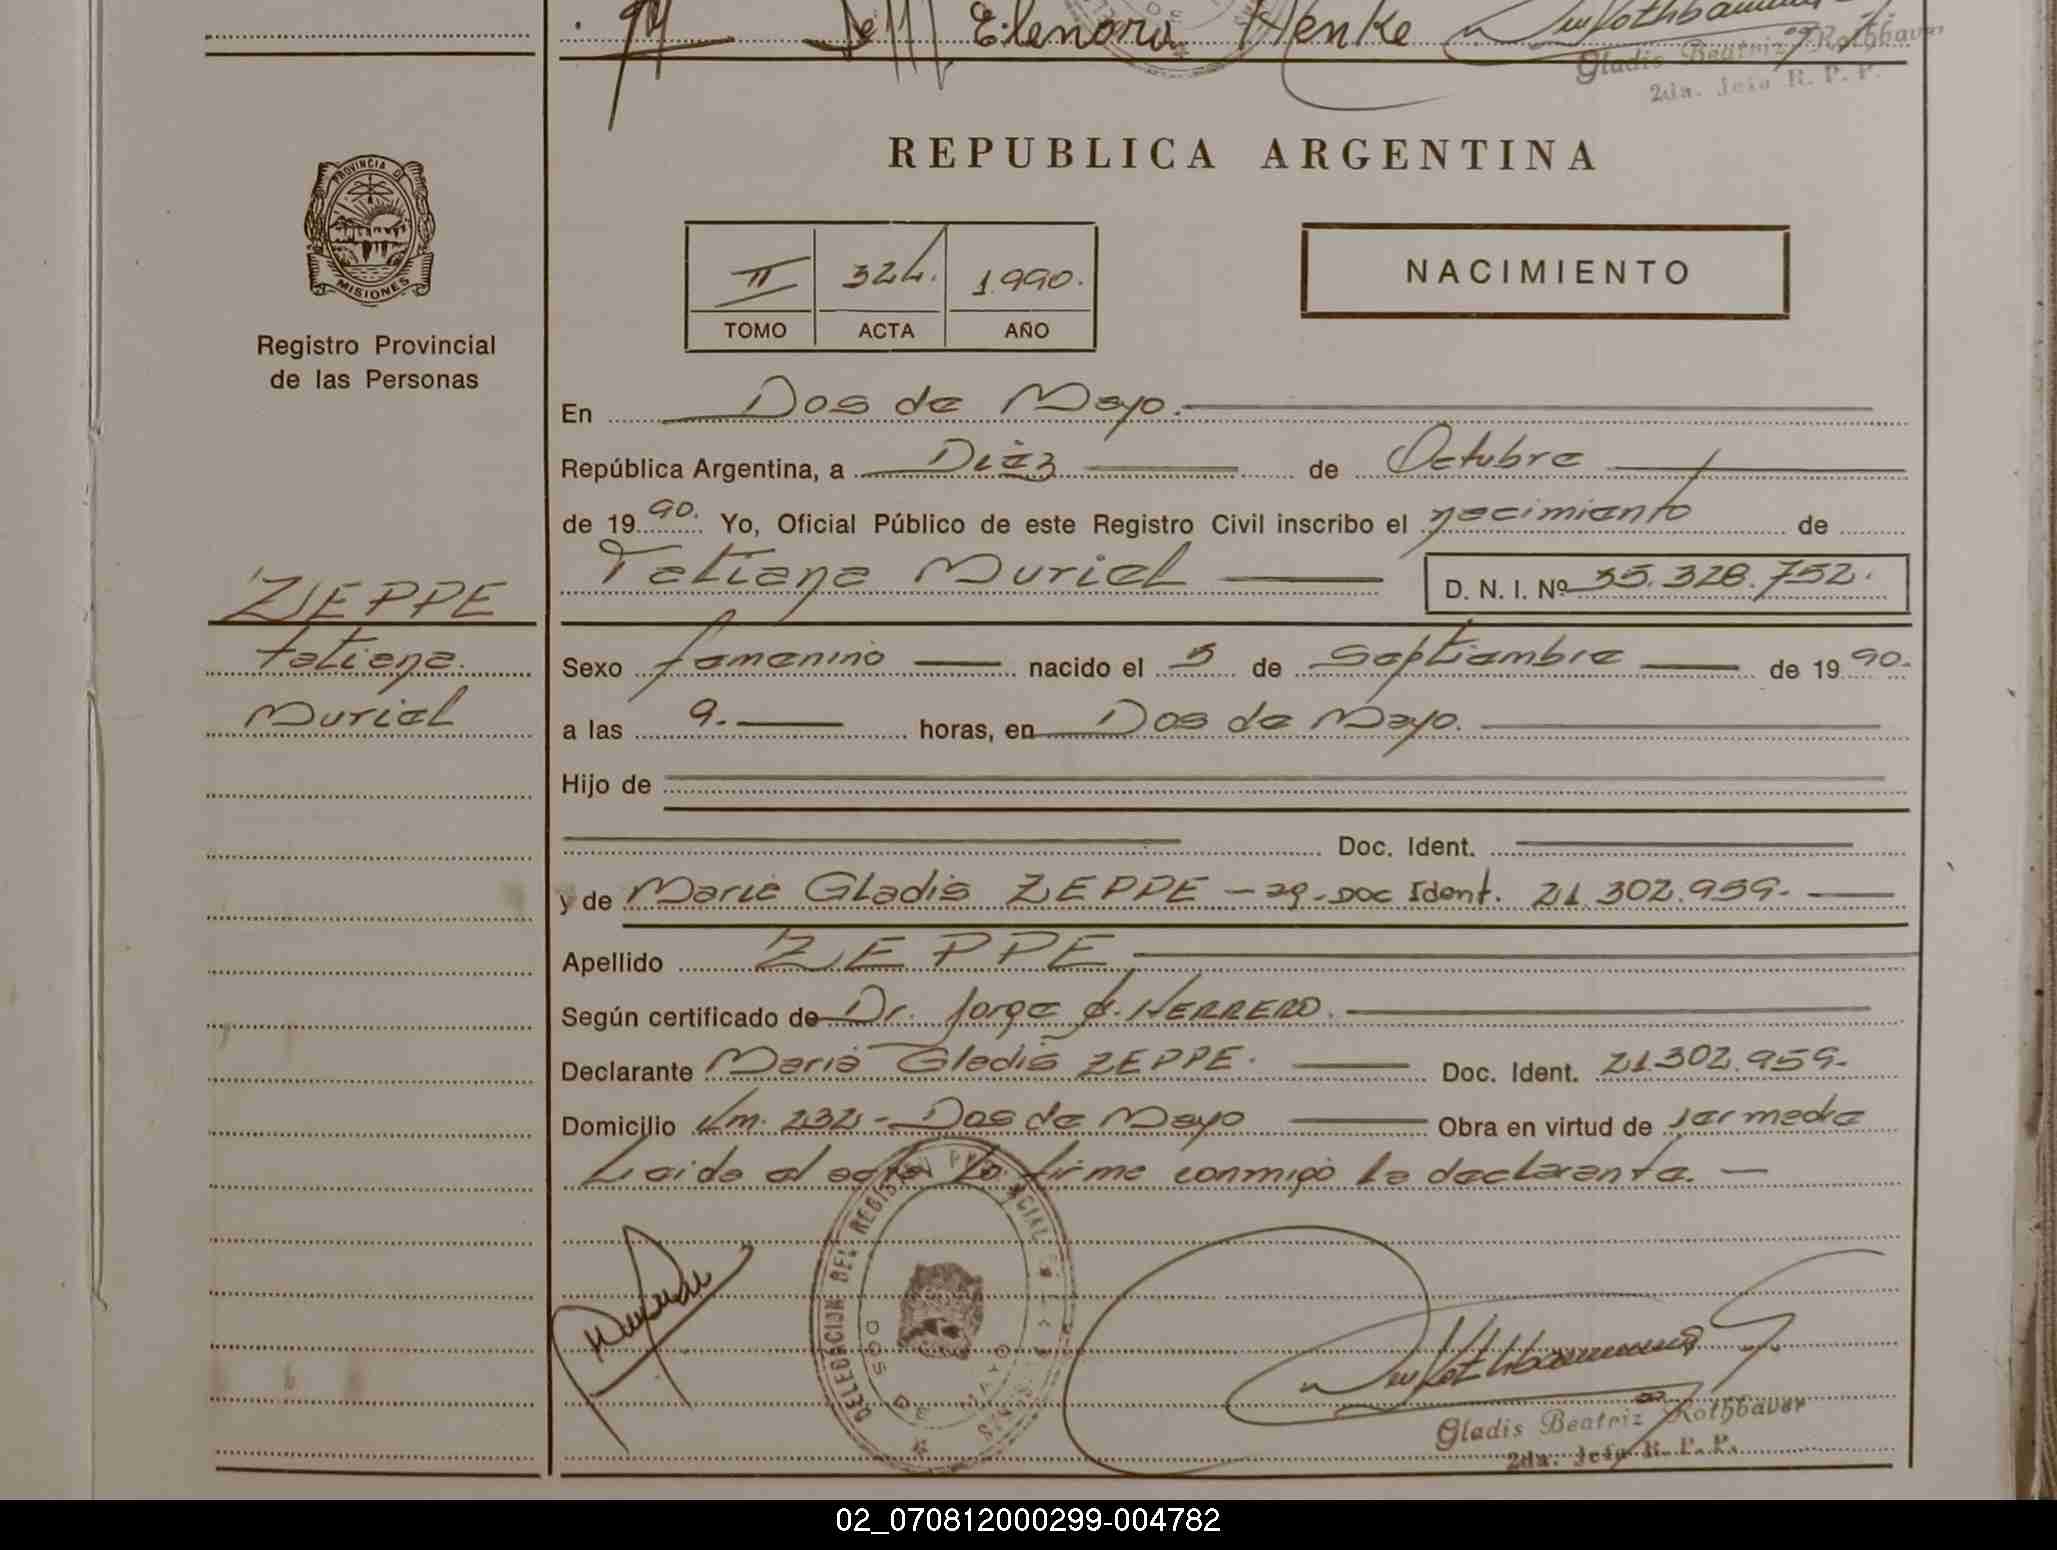 Elenora Henke
Gladis Beatriz Rothbaver
2da. Jefa R. P. P.
REPUBLICA ARGENTINA
PROVINCIA DE
MISIONES
Registro Provincial
de las Personas
II 324. 1.990.
TOMO ACTA AÑO
NACIMIENTO
En Dos de Mayo.
República Argentina, a Diéz de Octubre
de 1990. Yo, Oficial Público de este Registro Civil inscribo el nacimiento de
Tatiana Muriel D. N. I. Nº 35.328.752.
ZEPPE
Tatiana
Muriel
Sexo femenino nacido el 5 de Septiembre de 1990.
a las 9. horas, en Dos de Mayo.
Hijo de
Doc. Ident.
y de Maria Gladis ZEPPE - ag - Doc Ident. 21.302.959.
Apellido ZEPPE
Según certificado de Dr. Jorge HERRERO.
Declarante Maria Gladis ZEPPE. Doc. Ident. 21.302.959.
Domicilio Km. 232 - Dos de Mayo Obra en virtud de ser madre
Leida el acta La firma conmigo la declarante.
DELEGACION DEL REGISTRO PROVINCIAL
DOS DE MAYO
Gladis Beatriz Rothbaver
2da. Jefa R. P. P.
02_070812000299-004782